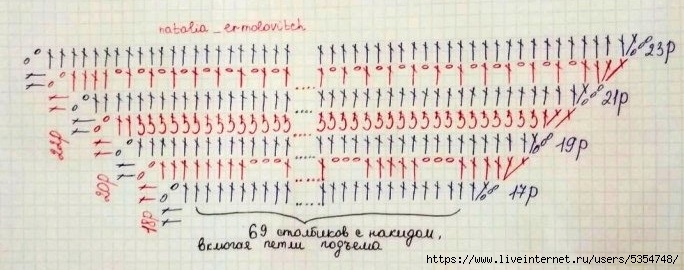 natalia_ermolovitch
23р
21р
22р
19р
20р
17р
18р
69 столбиков с накидом,
включая петли подъёма
https://www.liveinternet.ru/users/5354748/